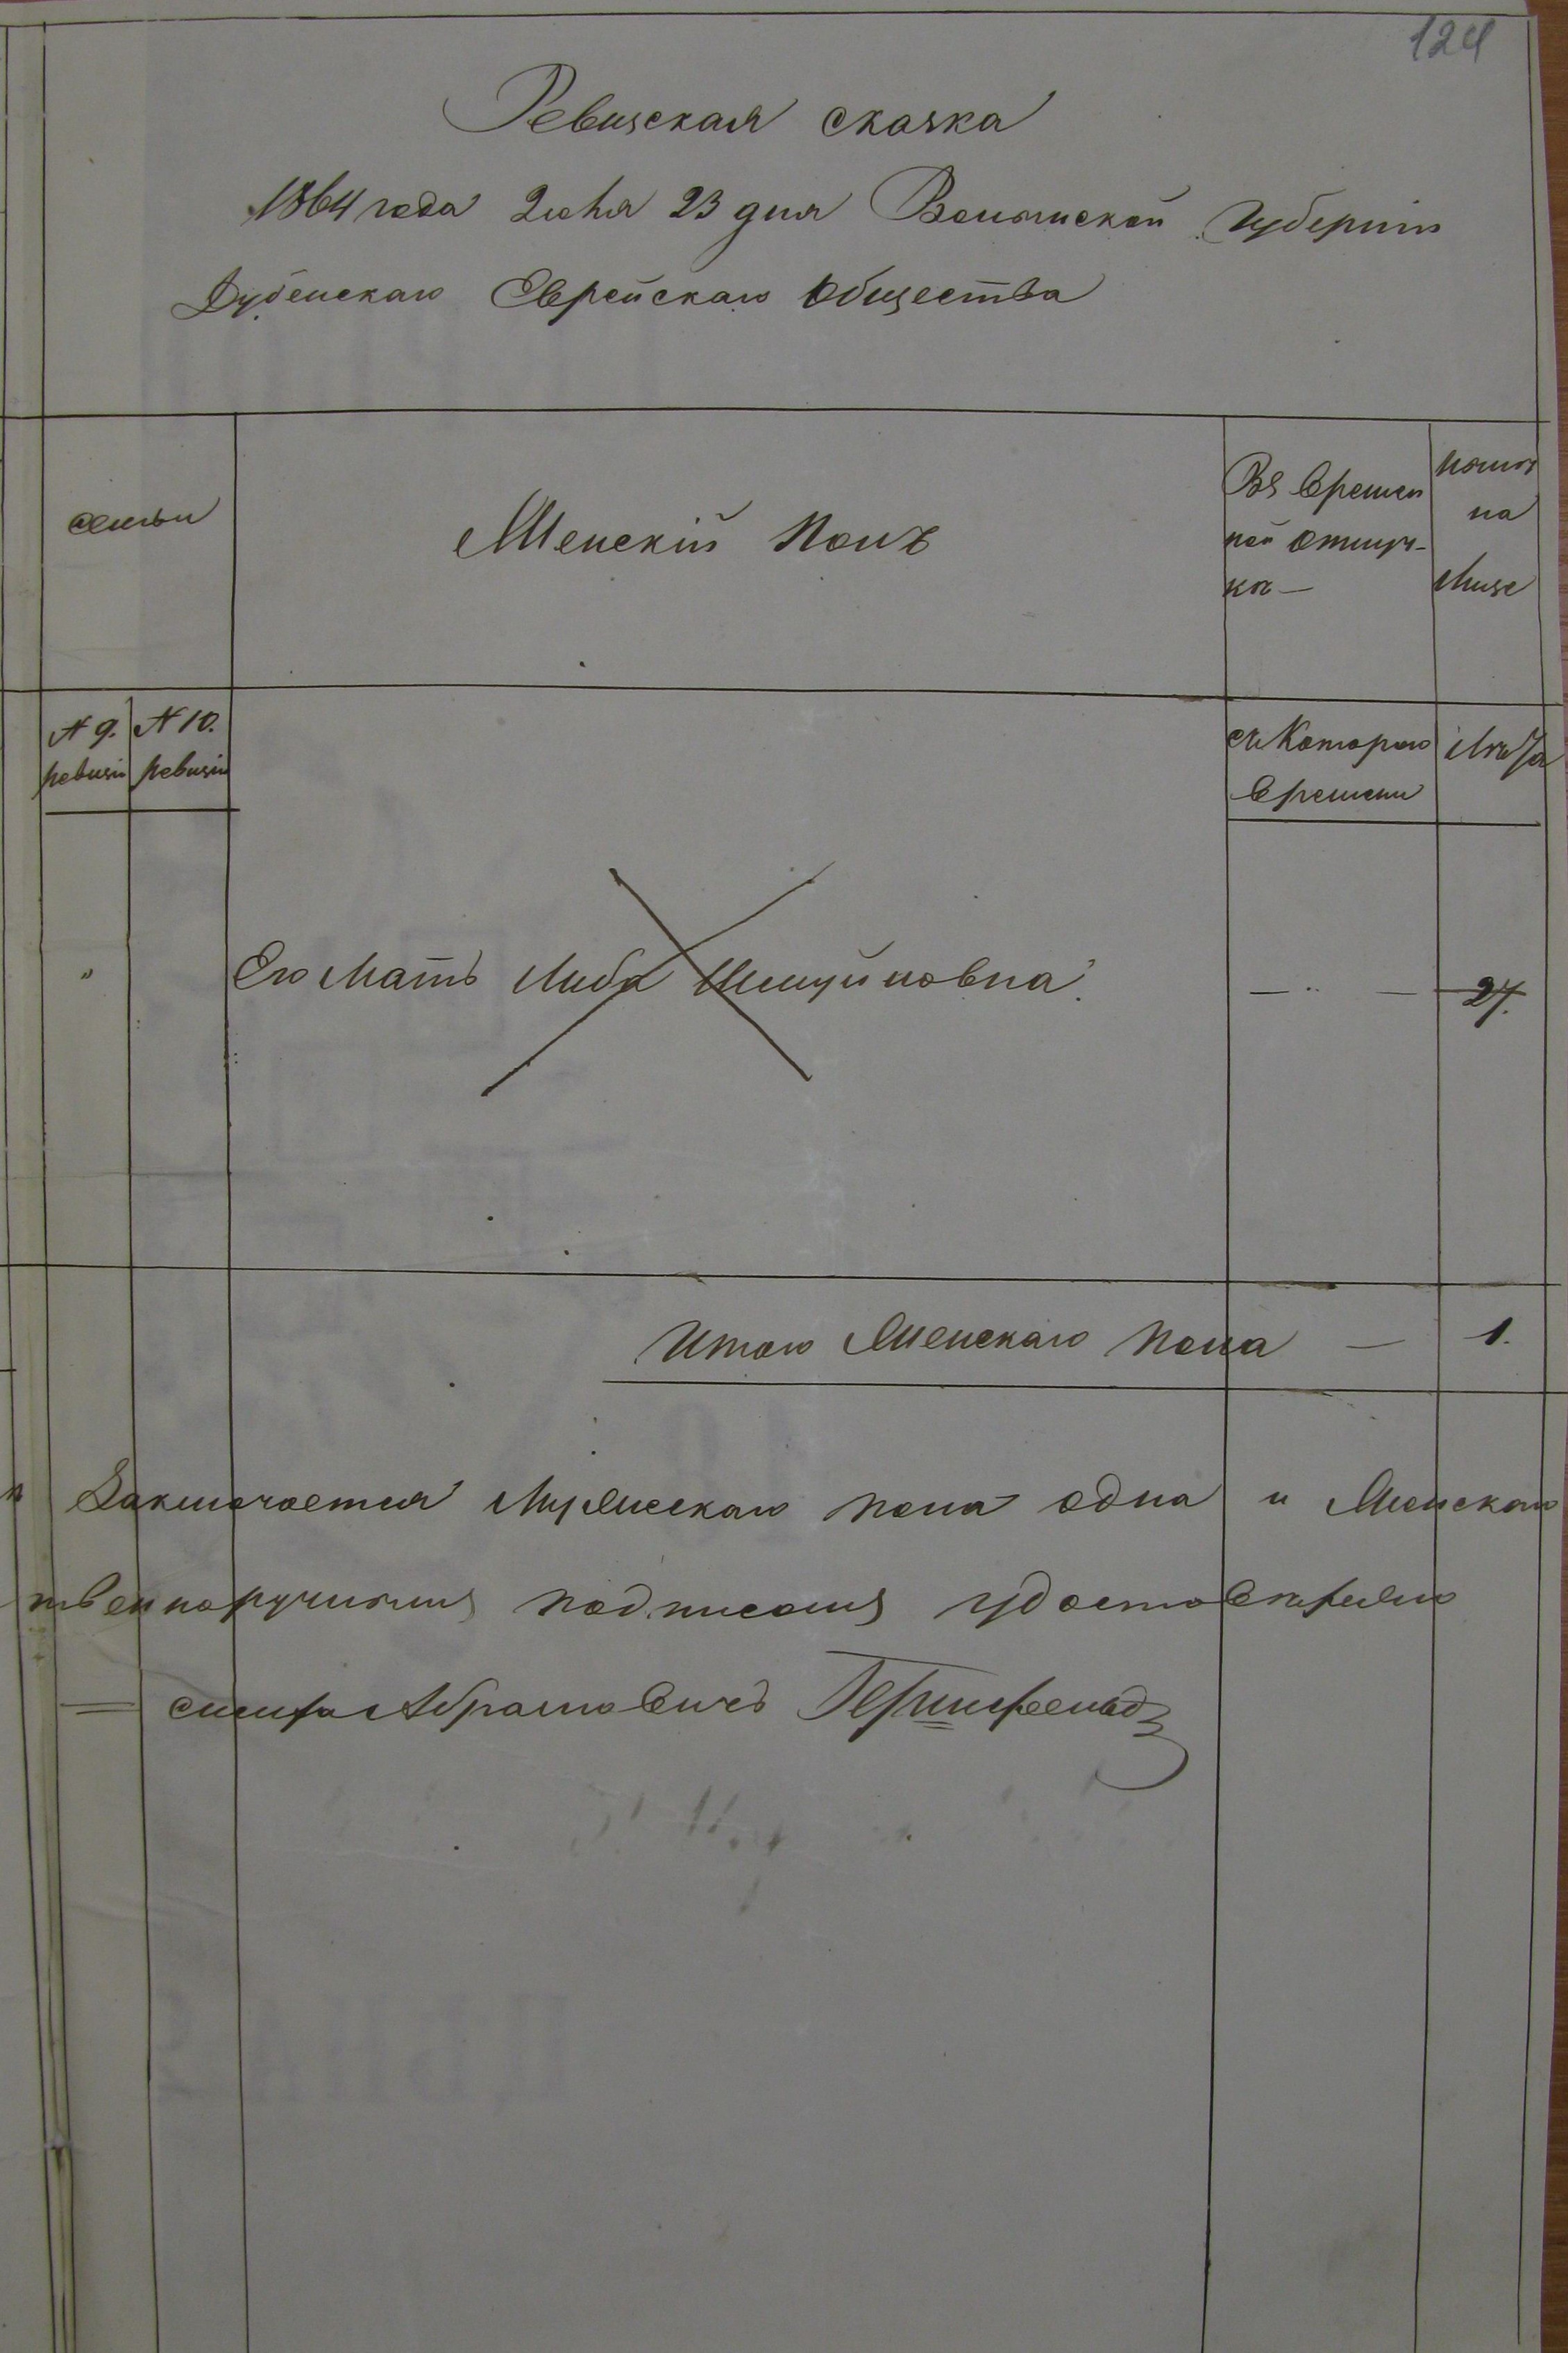 124
Ревизская сказка
1864 года Июня 23 дня Волынской Губерніи
Дубенскаго Еврейскаго Общества
семьи
Женскій Полъ
Въ времен
ной отлуч-
кѣ —
на
лице
№ 9. ревизіи
№ 10. ревизіи
съ Котораго
времени
Лѣта
"
Его Мать Либа
— " —
27.
Итого Женскаго Пола — 1.
Заключается Мужескаго пола одна и Женскаго
твенноручнымъ подписомъ удостовѣряю
= Абрамовичъ Гершфельд